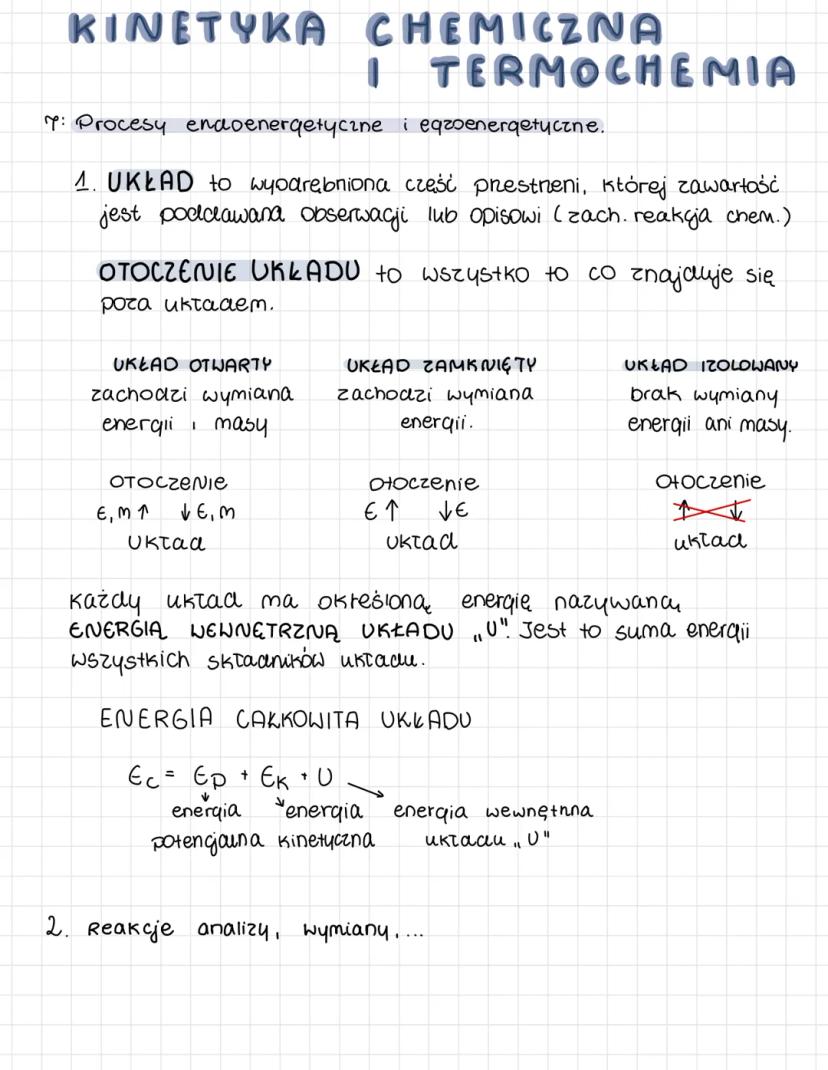 KINETYKA CHEMICZNA
I TERMOCHEMIA
T: Procesy endoenergetyczne i egzoenergetyczne.
1. UKŁAD to wyodrębniona część przestrzeni, której zawartość
jest poddawana obserwacji lub opisowi (zach. reakcja chem.)
OTOCZENIE UKŁADU to wszystko to co znajduje się
poza układem.
UKŁAD OTWARTY
zachodzi wymiana
energii i masy
OTOCZENIE
E, m ↑ ↓ E, m
Układ
UKŁAD ZAMKNIĘTY
zachodzi wymiana
energii.
Otoczenie
E ↑ ↓ E
układ
UKŁAD IZOLOWANY
brak wymiany
energii ani masy.
Otoczenie
↑ ↓
układ
Każdy układ ma określoną energię nazywaną
ENERGIĄ WEWNĘTRZNĄ UKŁADU „U". Jest to suma energii
wszystkich składników układu.
ENERGIA CAŁKOWITA UKŁADU
Ec = Ep + Ek + U
energia energia energia wewnętrzna
potencjalna kinetyczna układu „U"
2. Reakcje analizy, wymiany,...